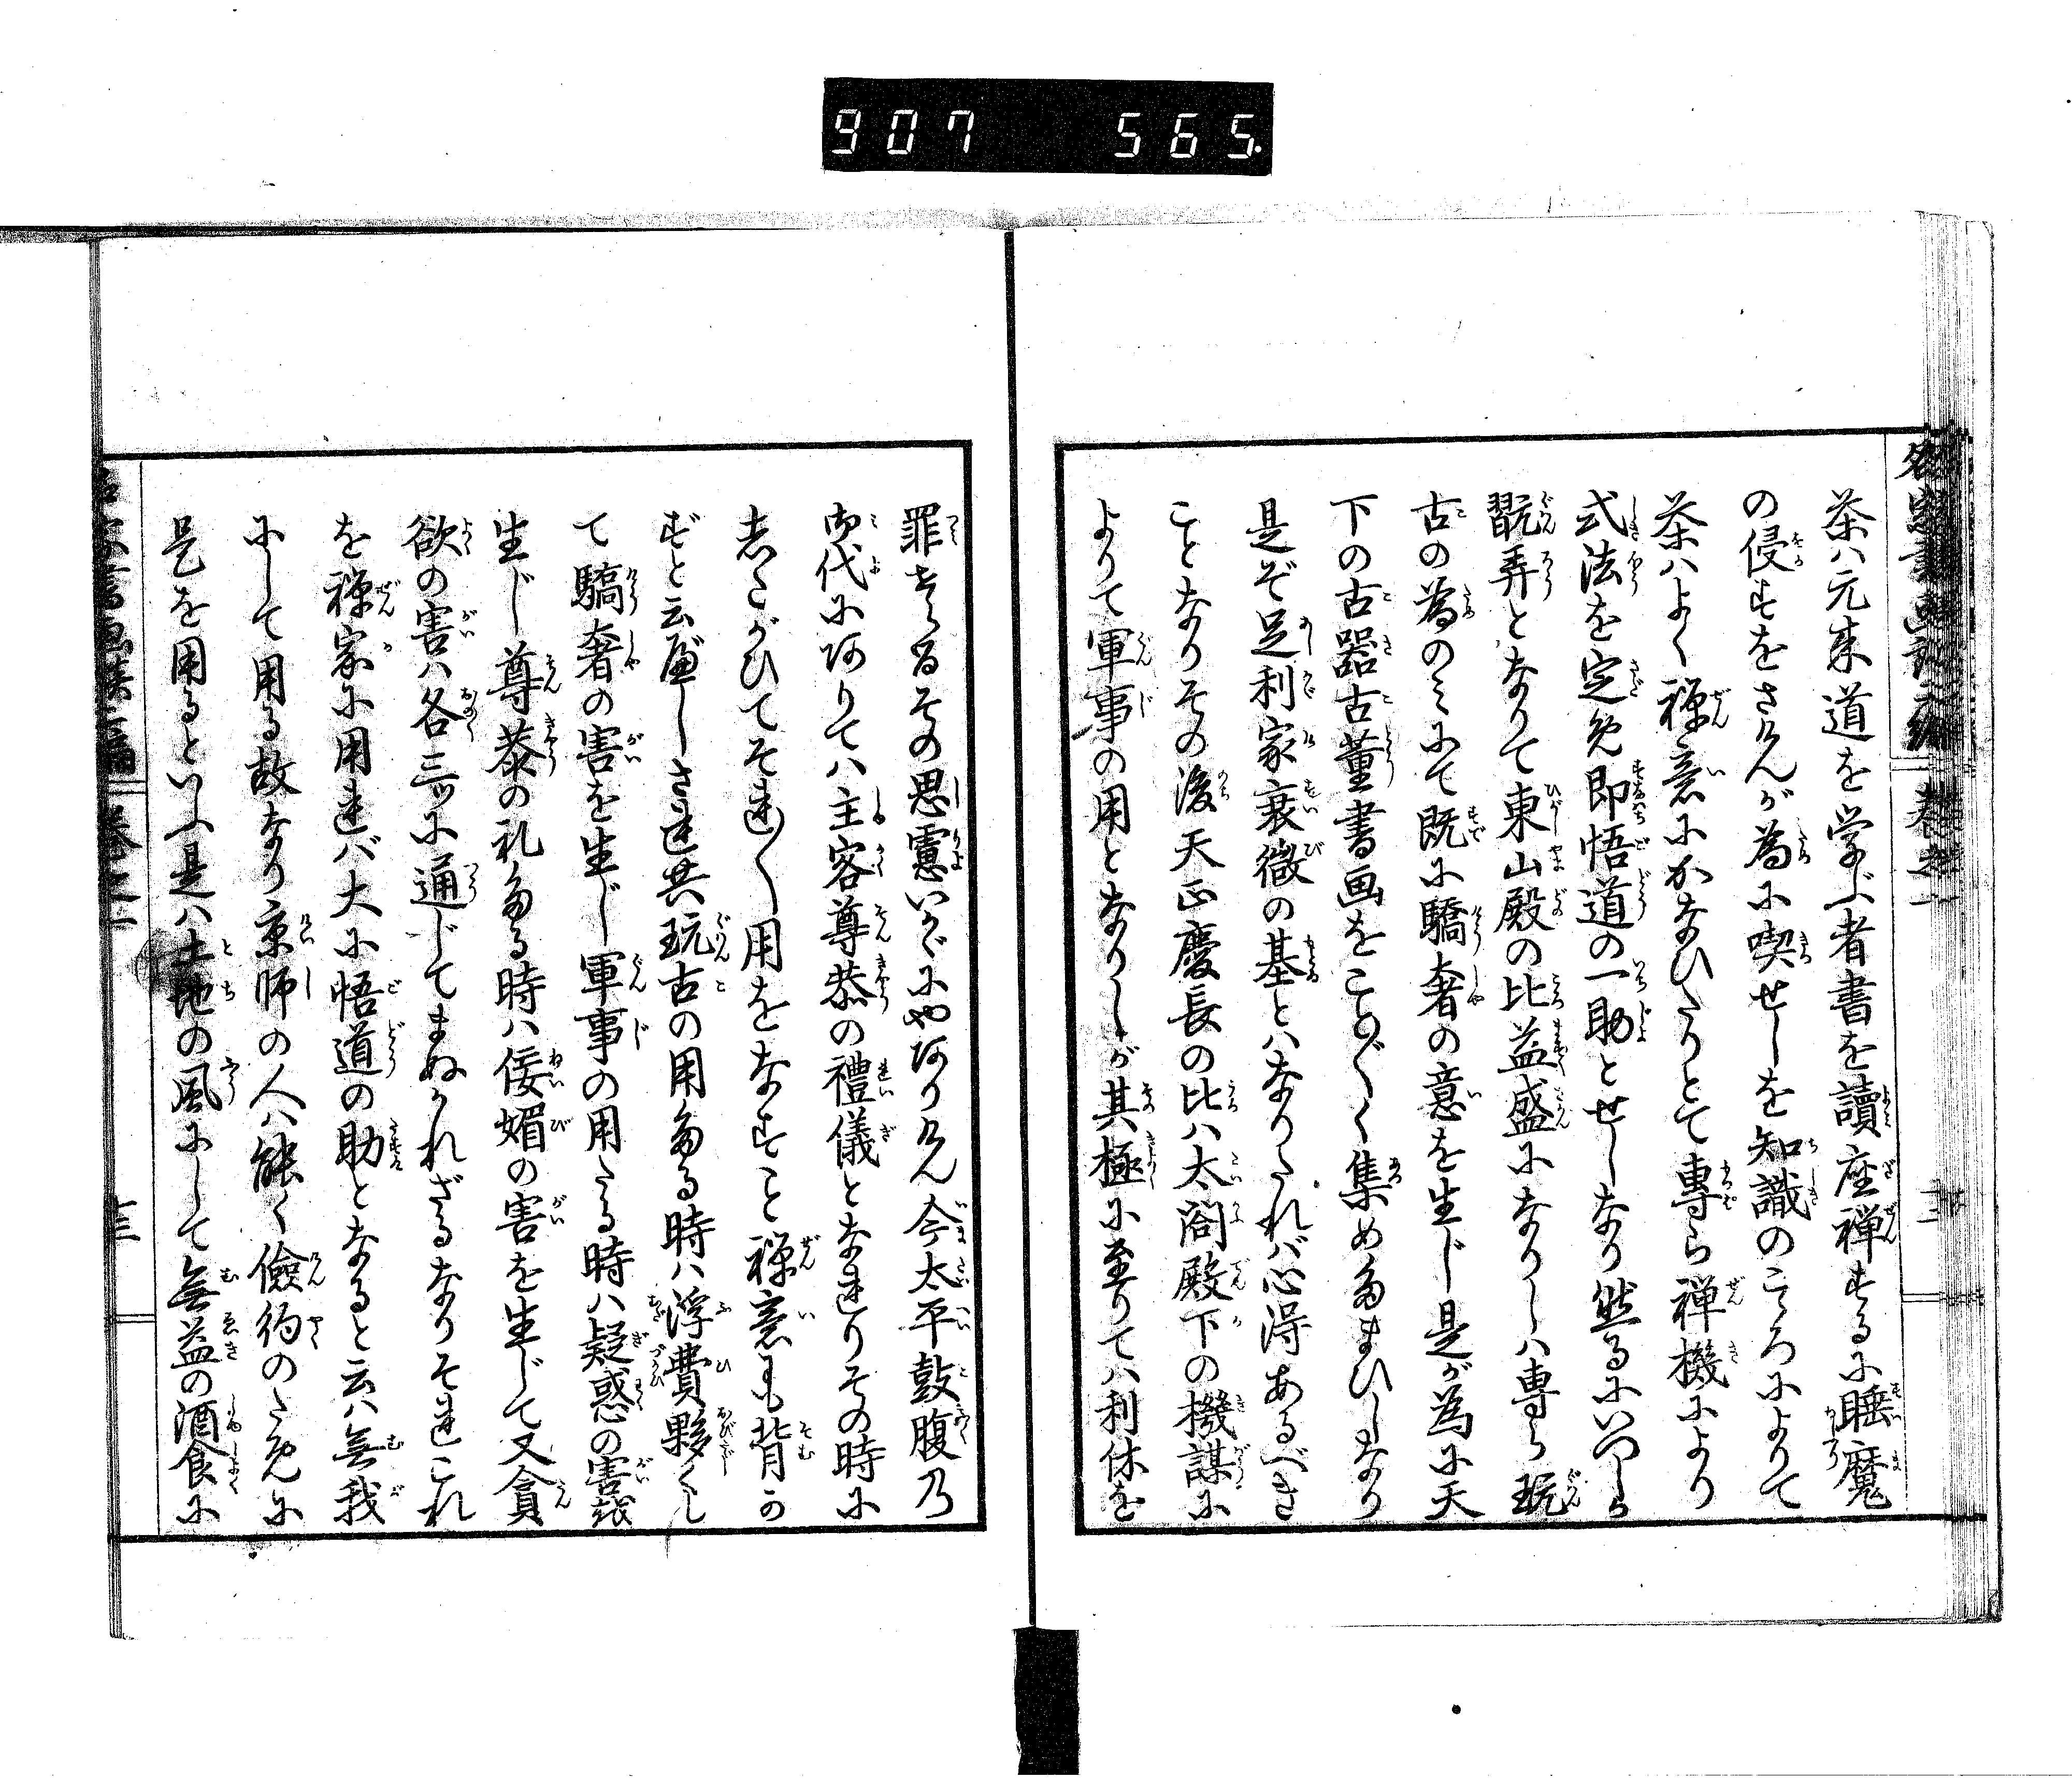 907 565.
茶ハ元来道を学ぶ者書を讀座禅するに睡魔
の侵すをさけんが為に喫せしを知識のこゝろによりて
茶ハよく禅意にかなひたりとて專ら禅機により
式法を定め即悟道の一助とせしなり然るにいつしか
翫弄となりて東山殿の比益盛になりしハ専ら玩
古の為のミにて既に驕奢の意を生じ是が為に天
下の古器古董書画をこと〴〵く集め給まひしなり
是ぞ足利家衰微の基とハなりたれバ心得あるべき
ことなりその後天正慶長の比ハ太閤殿下の機謀に
よりて軍事の用となりしが其極に至りてハ利休を
罪せらるその思慮いかゞにやありけん今太平鼓腹乃
御代にありてハ主客尊恭の禮儀となれりその時に
したがひてそれ〳〵用をなすこと禅意にも背か
ずと云べしされ共玩古の用たる時ハ浮費夥くし
て驕奢の害を生じ軍事の用たる時ハ疑惑の害を
生じ尊恭の礼たる時ハ佞媚の害を生じて又貪
欲の害ハ各三ツに通じてまぬかれざるなりそれこれ
を禅家に用れバ大に悟道の助となると云ハ無我
にして用る故なり京師の人ハ能く儉約のために
是を用るといふ是ハ土地の風にして無益の酒食に